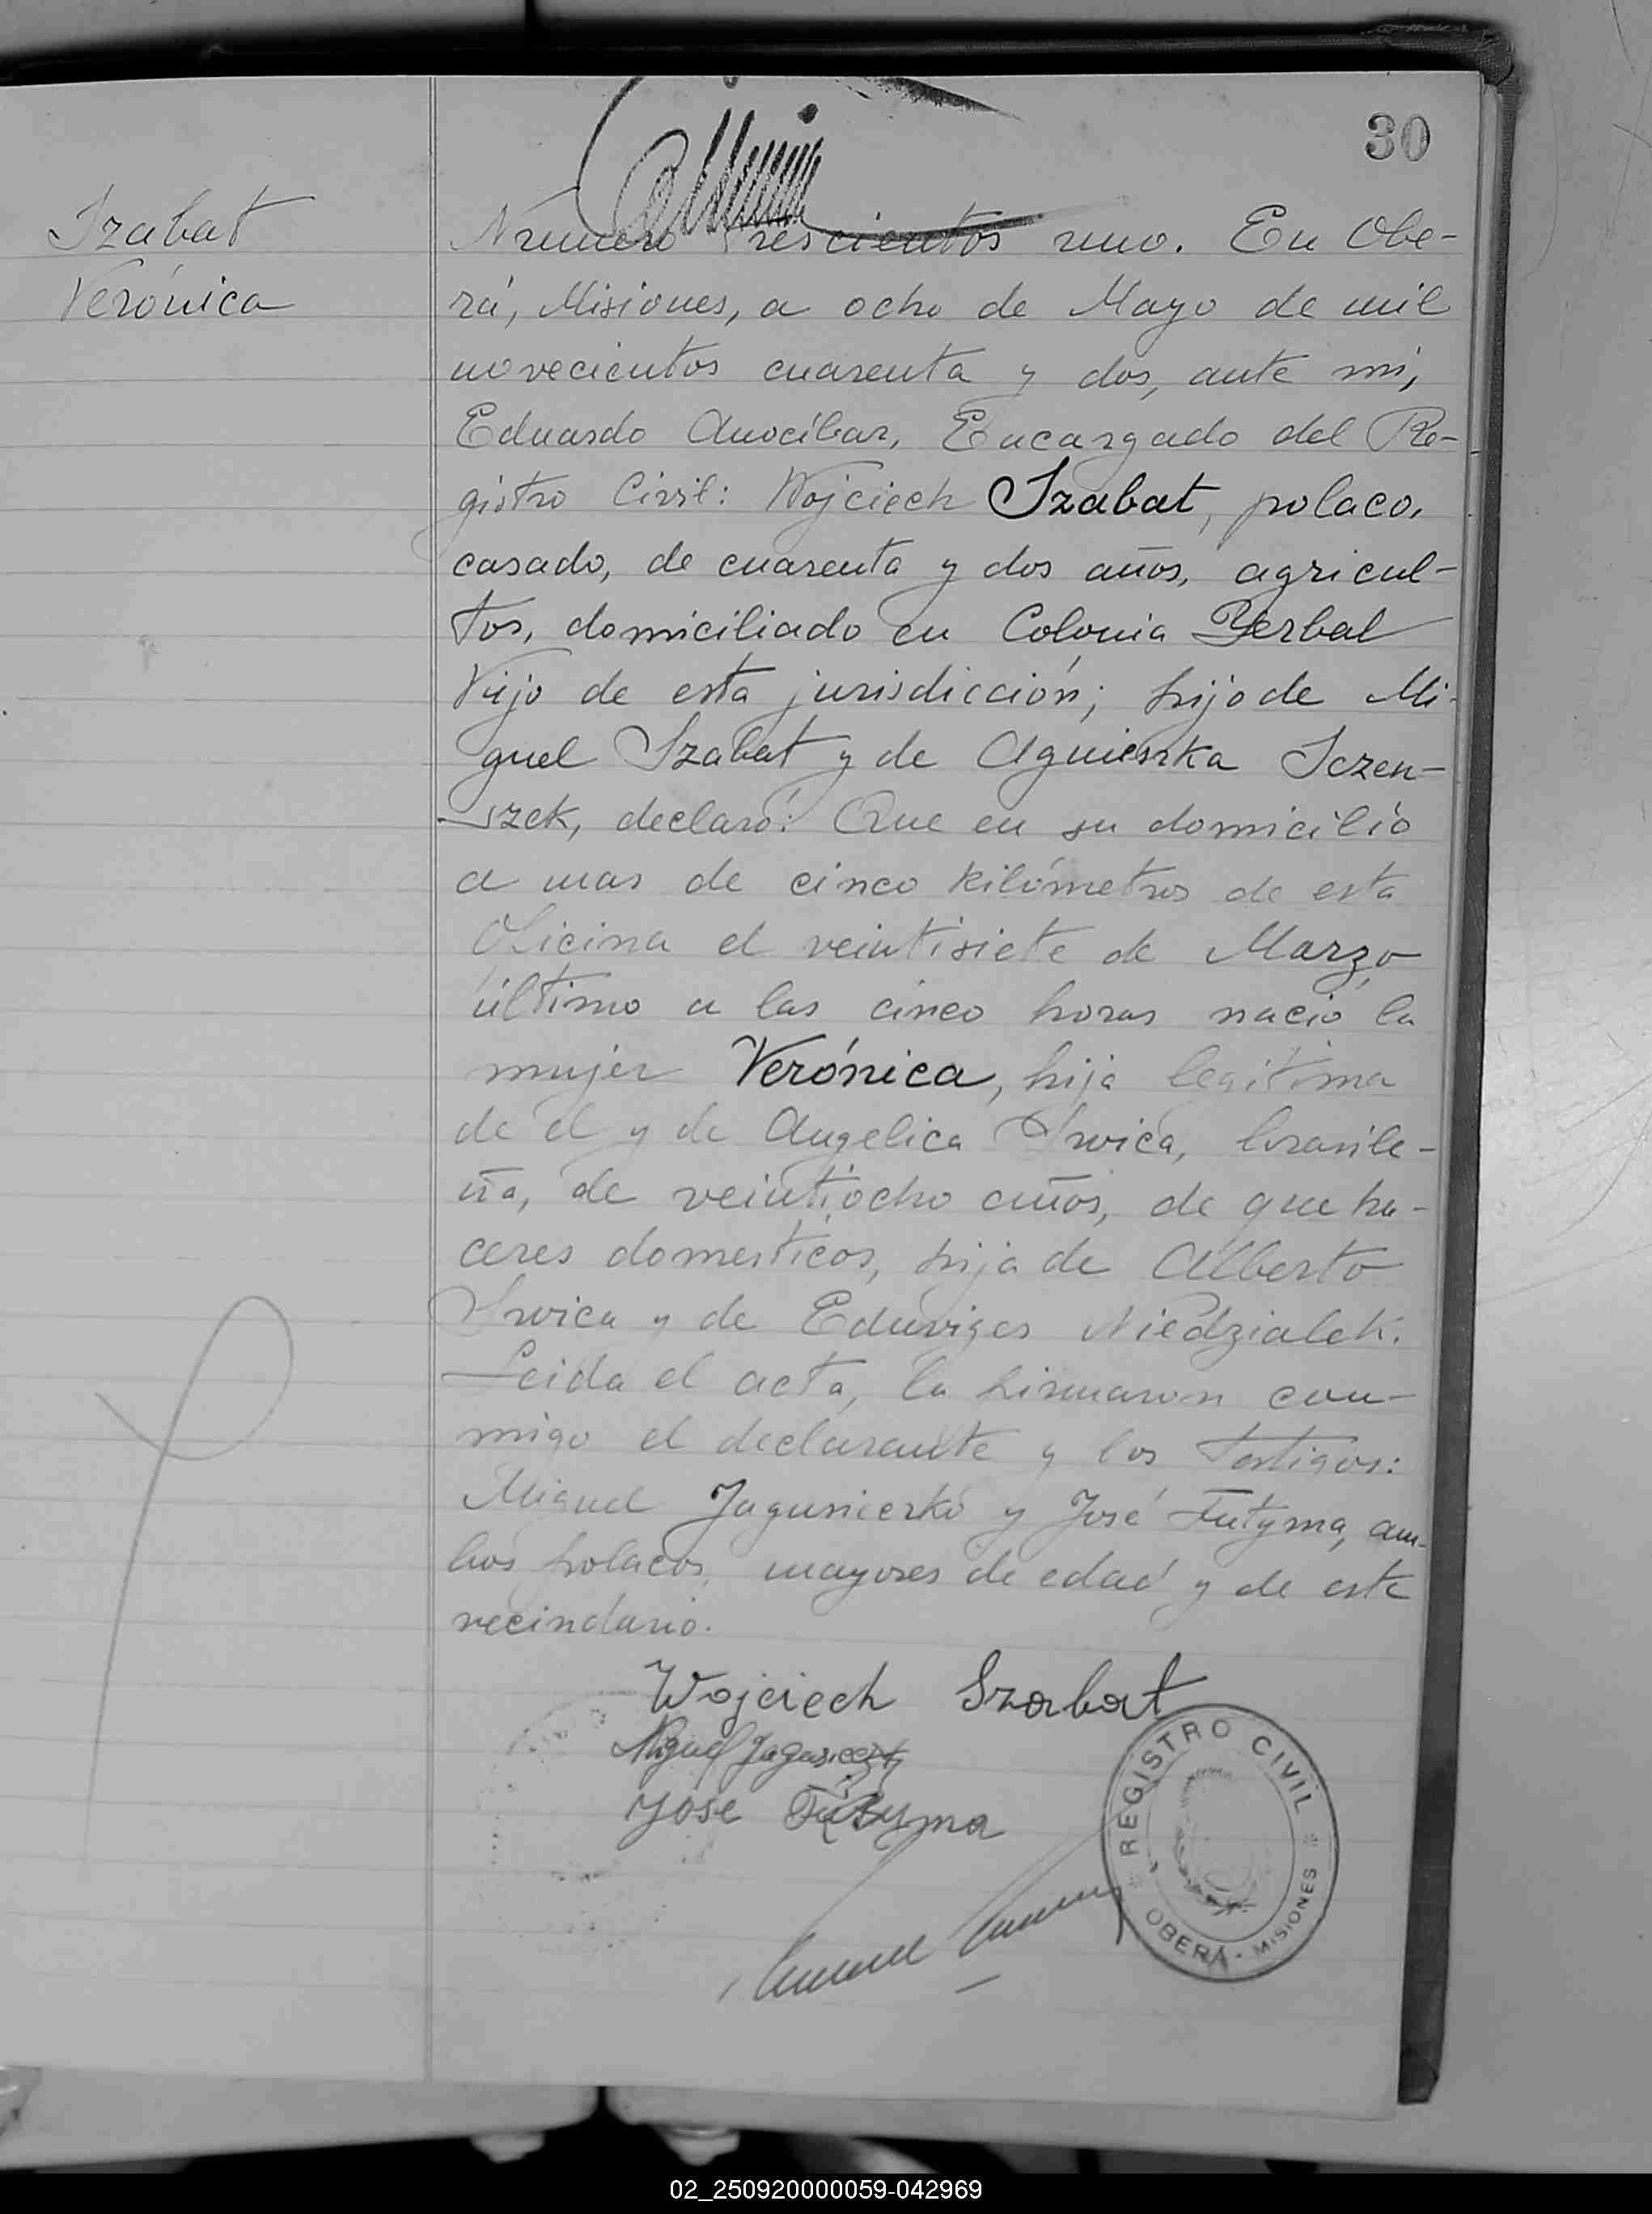 30
Szabat
Verónica
Número trescientos uno. En Obe-
rá, Misiones, a ocho de Mayo de mil
novecientos cuarenta y dos, ante mí,
Eduardo Anocíbar, Encargado del Re-
gistro Civil: Wojciech Szabat, polaco,
casado, de cuarenta y dos años, agricul-
tor, domiciliado en Colonia Yerbal
Viejo de esta jurisdicción; hijo de Mi-
guel Szabat y de Agnieszka Sczen-
szek, declaró: Que en su domicilio
a mas de cinco kilómetros de esta
Oficina el veintisiete de Marzo
último a las cinco horas nació la
mujer Verónica, hija legítima
de el y de Angelica Srvica, brasile-
ña, de veintiocho años, de que ha-
ceres domésticos, hija de Alberto
Srvica y de Eduviges Niedzialek.
Leida el acta, la firmaron con-
migo el declarante y los testigos:
Miguel y José Futyma, am-
bos polacos, mayores de edad y de este
vecindario.
Wojciech Szabat
Miguel
Jose Futyma
REGISTRO CIVIL
OBERÁ - MISIONES
02_250920000059-042969